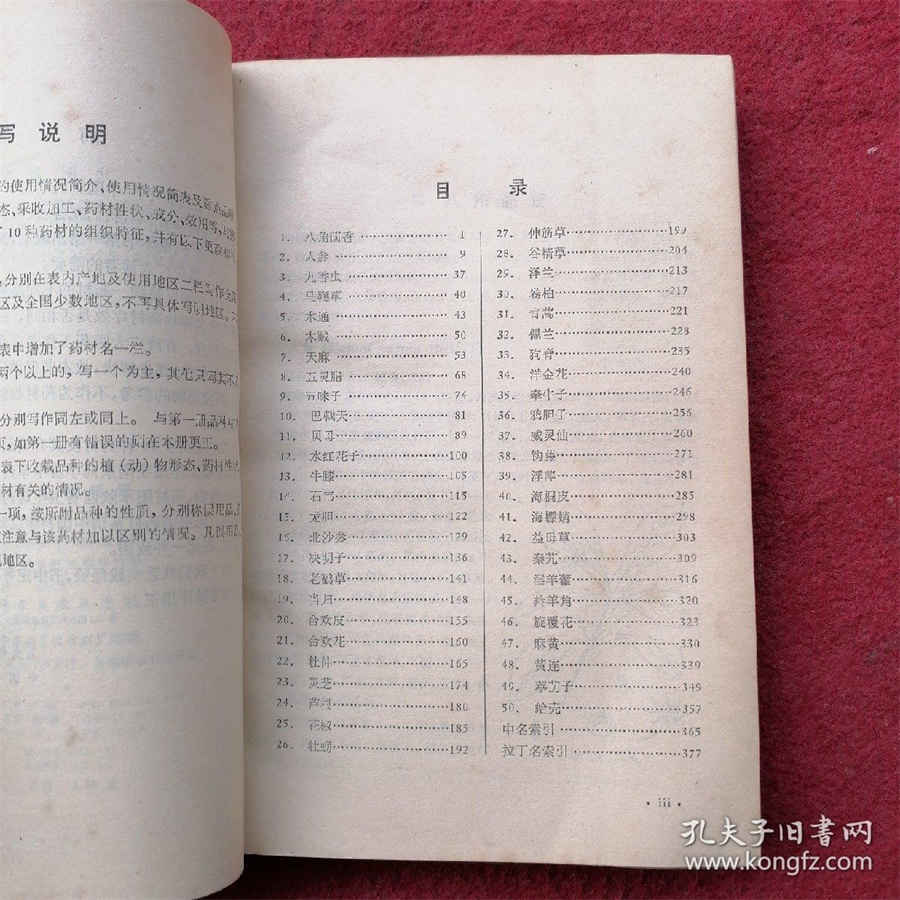 写说明
的使用情况简介、使用情况简表及
态、采收加工、药材性状、成分、效用等
了10种药材的组织特征，并有以下更
，分别在表内产地及使用地区二栏
区及全国少数地区，不再具体写
表中增加了药材名一栏。
两个以上的，写一个为主，其他
分别写作同左或同上。 与第一册品种
页，如第一册有错误的则在本册更正。
表下收载品种的植（动）物形态、药材性
材有关的情况。
一项，按所附品种的性质，分别称
注意与该药材加以区别的情况。
地区。
目录
1. 八角茴香 1
2. 人参 9
3. 九香虫 37
4. 马鞭草 40
5. 木通 43
6. 木贼 50
7. 天麻 53
8. 五灵脂 68
9. 五味子 74
10. 巴戟天 81
11. 贝母 89
12. 水红花子 100
13. 牛膝 105
14. 石韦 115
15. 龙胆 122
16. 北沙参 129
17. 决明子 136
18. 老鹳草 141
19. 当归 148
20. 合欢皮 155
21. 合欢花 160
22. 杜仲 165
23. 灵芝 174
24. 芦根 180
25. 花椒 185
26. 牡蛎 192
27. 伸筋草 199
28. 谷精草 204
29. 泽兰 213
30. 卷柏 217
31. 青蒿 221
32. 佩兰 228
33. 狗脊 235
34. 洋金花 240
35. 牵牛子 246
36. 鸦胆子 256
37. 威灵仙 260
38. 钩藤 271
39. 浮萍 281
40. 海桐皮 285
41. 海螵蛸 298
42. 益母草 303
43. 秦艽 309
44. 淫羊藿 316
45. 羚羊角 320
46. 旋覆花 323
47. 麻黄 330
48. 黄连 339
49. 葶苈子 349
50. 蛤壳 357
中名索引 365
拉丁名索引 377
· iii ·
孔夫子旧书网
www.kongfz.com